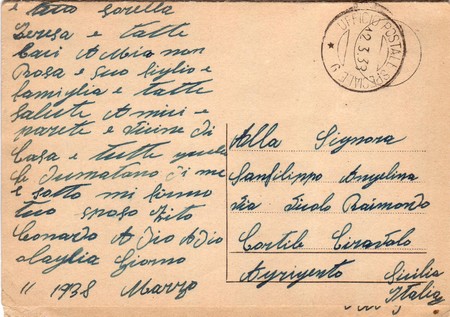 e tuo sorella
Teresa e tutte
Cari A Mia non
Rosa e suo figlio e
famiglia e tutte
Salute Amici e
parete e vicine di
Casa e tutte quelle
fe dumatano di me
e sotto mi firmo
tuo sposo Aito
Leonardo A Dio A Dio
alaglia Giorno
11 1938 Marzo
UFFICIO POSTALE SPECIALE 9
12.3.38
Alla Signora
Sanfilippo Angelina
Via Nicolo Raimondo
Cortile Ciravolo
Agrigento Sicilia
Italia